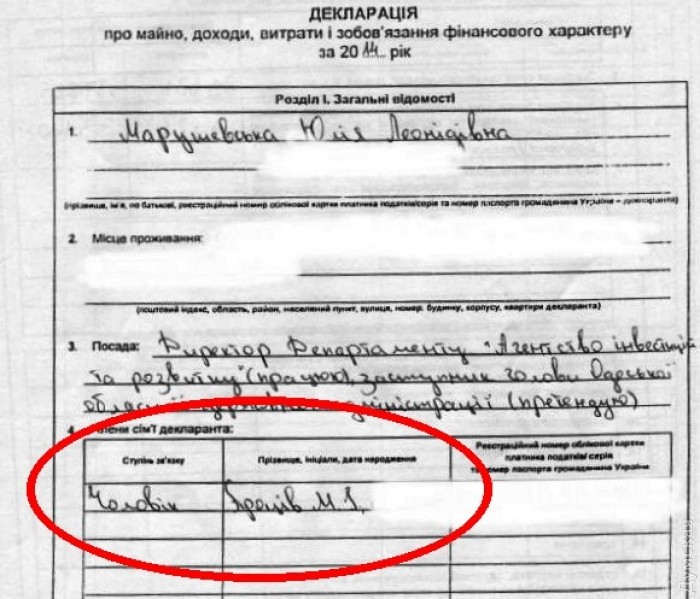 ДЕКЛАРАЦІЯ
про майно, доходи, витрати і зобов'язання фінансового характеру
за 2014 рік
Розділ I. Загальні відомості
1. Марушевська Юлія Леонідівна
(прізвище, ім'я, по батькові, реєстраційний номер облікової картки платника податків/серія та номер паспорта громадянина України – декларанта)
2. Місце проживання:
(поштовий індекс, область, район, населений пункт, вулиця, номер: будинку, корпусу, квартири декларанта)
3. Посада: Директор Департаменту "Агентство інвестицій
та розвитку" (працюю), заступник голови Одеської
обласної державної адміністрації (претендую)
4. Члени сім'ї декларанта:
Ступінь зв'язку
Прізвище, ініціали, дата народження
Реєстраційний номер облікової картки
платника податків/серія
та номер паспорта громадянина України
Чоловік
М.